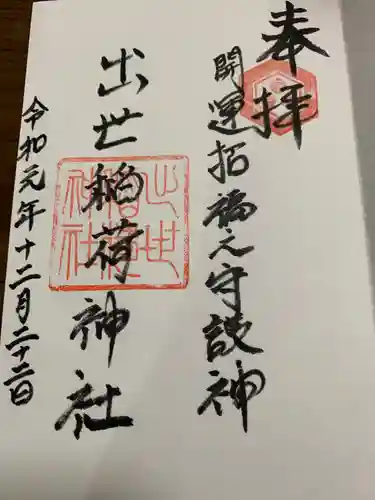 奉拝
開運招福之守護神
出世稲荷神社
令和元年十二月二十二日
出世稲荷神社